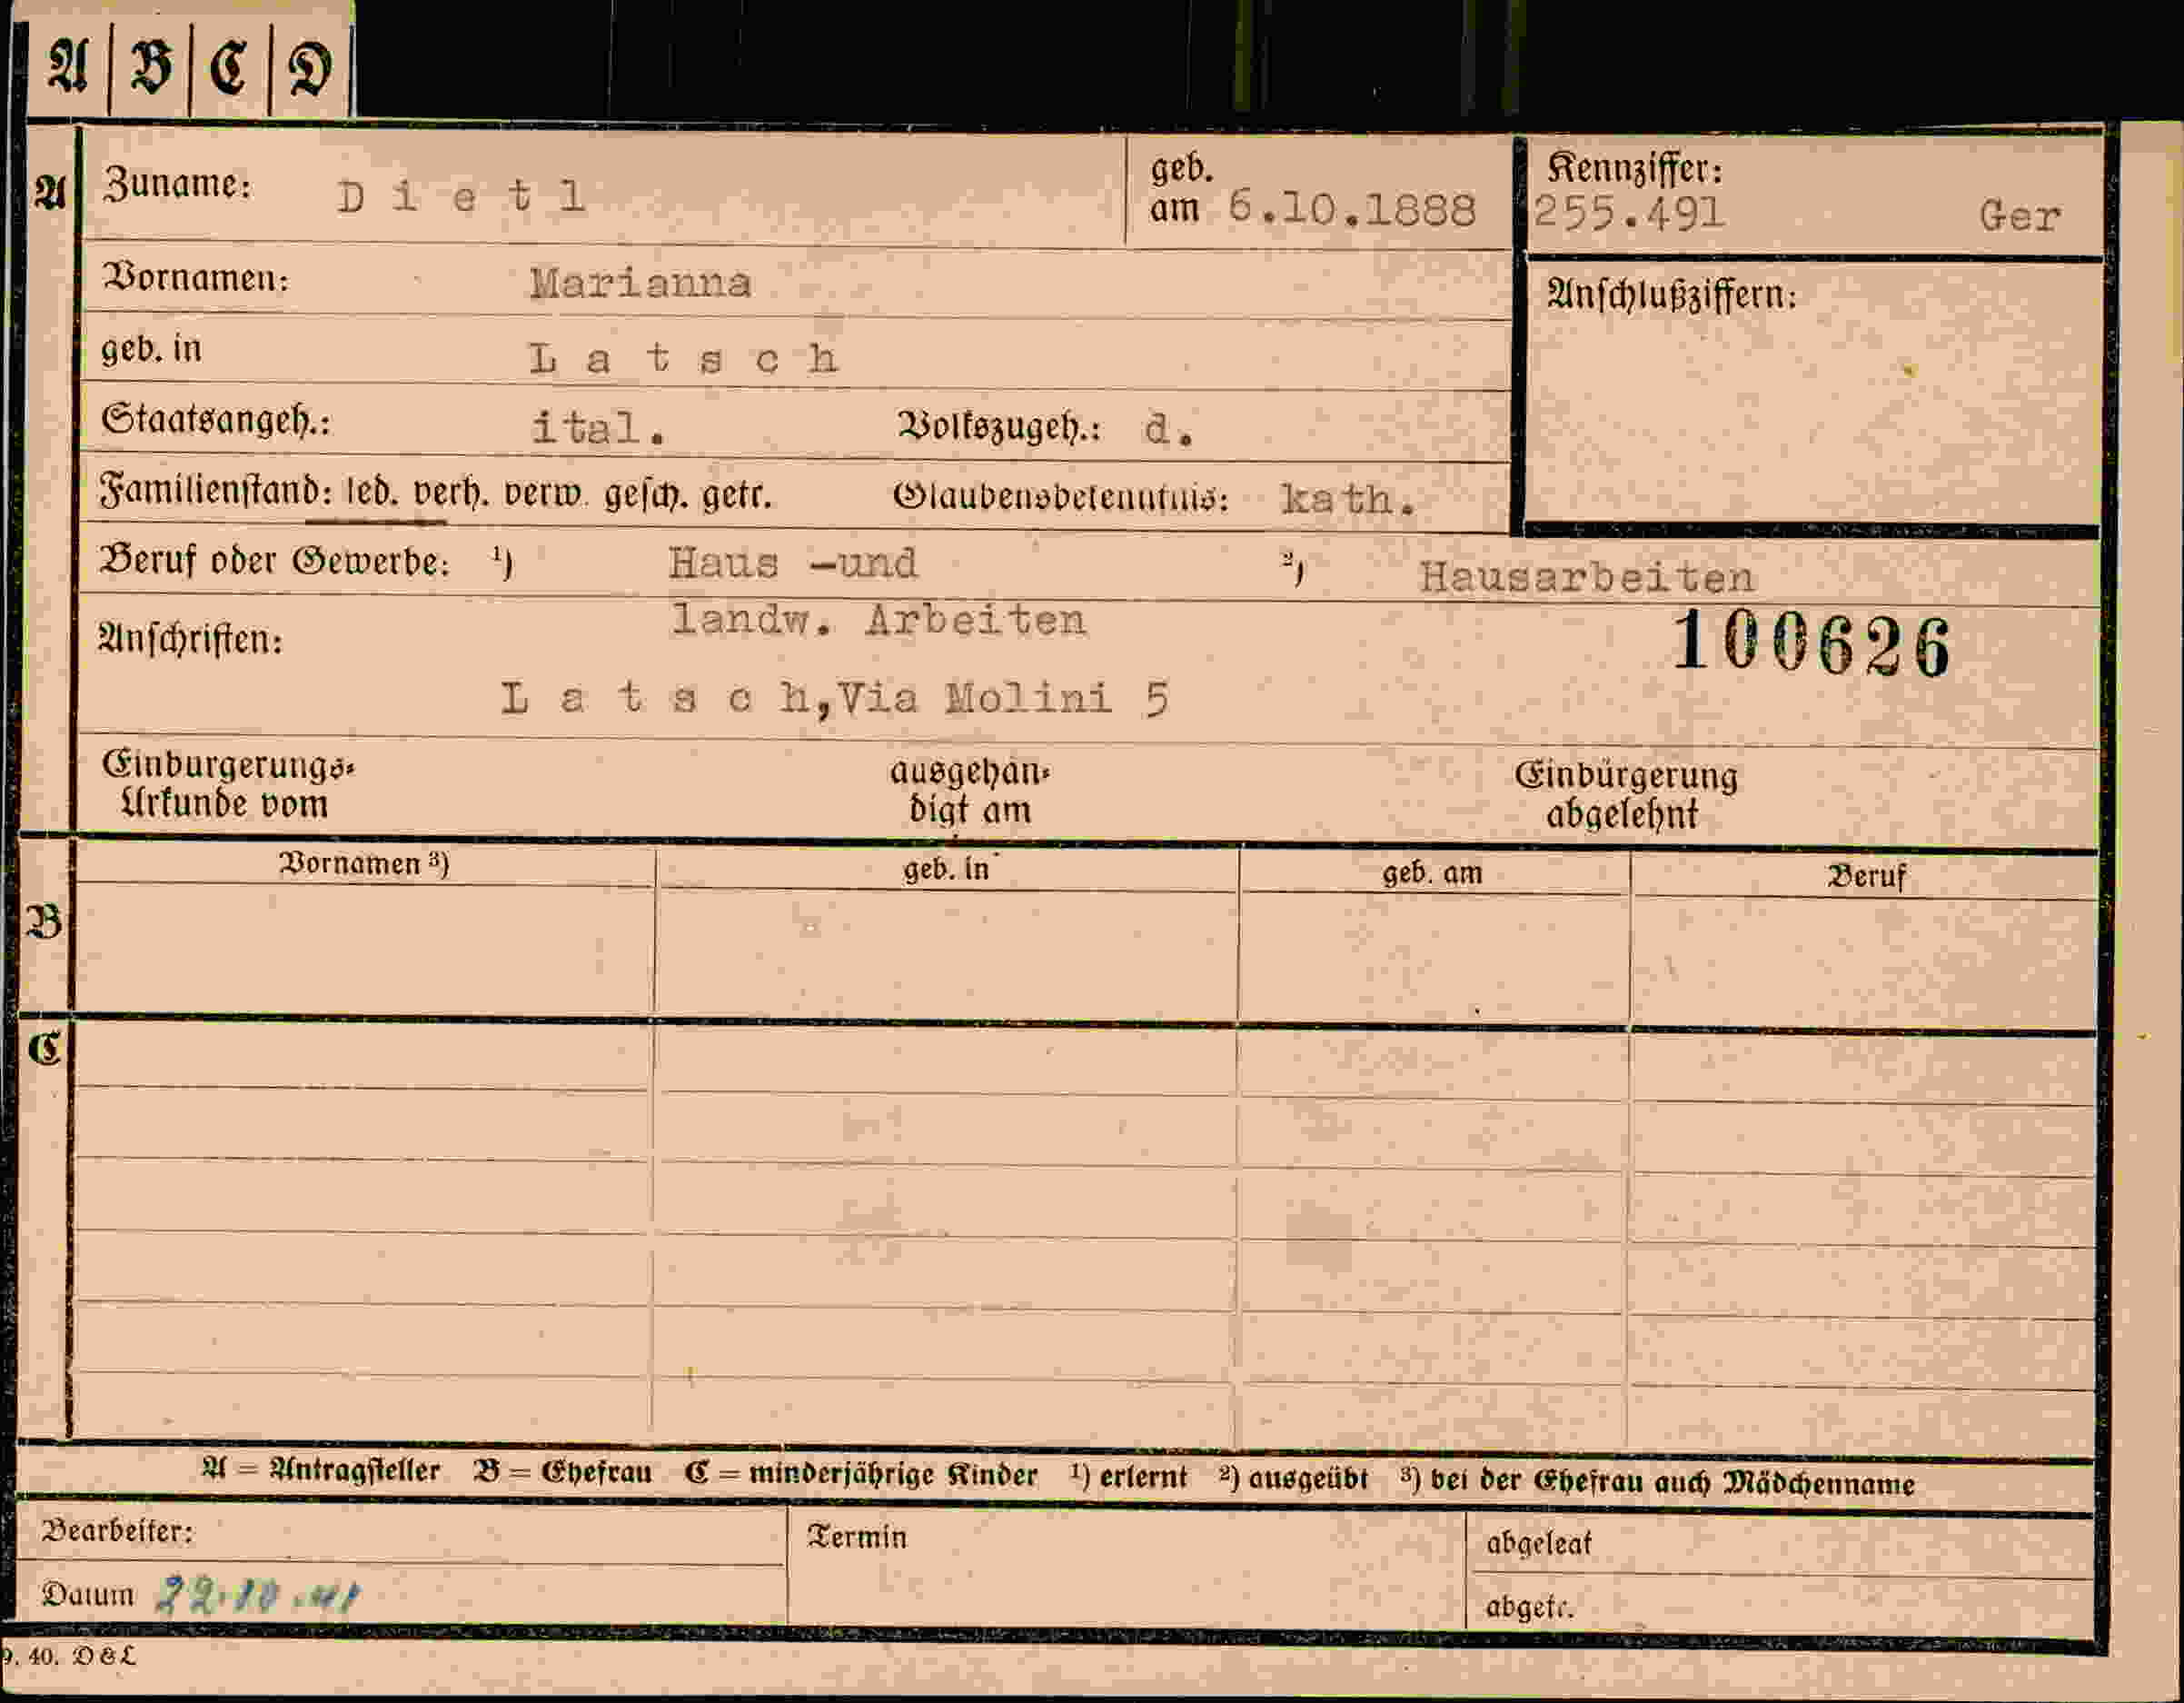 A B C D
A Zuname: Dietl geb. am 6.10.1888 Kennziffer: 255.491 Ger
Vornamen: Marianna Anschlußziffern:
geb. in Latsch
Staatsangeh.: ital. Volkszugeh.: d.
Familienstand: led. verh. verw. gesch. getr. Glaubensbekenntnis: kath.
Beruf oder Gewerbe: ¹) Haus -und ²) Hausarbeiten
landw. Arbeiten
Anschriften: 100626
Latsch,Via Molini 5
Einbürgerungs- ausgehän- Einbürgerung
Urkunde vom digt am abgelehnt
Vornamen ³) geb. in geb. am Beruf
B
C
A = Antragsteller B = Ehefrau C = minderjährige Kinder ¹) erlernt ²) ausgeübt ³) bei der Ehefrau auch Mädchenname
Bearbeiter: Termin abgelegt
Datum 22.10.41 abgetr.
9. 40. D & L